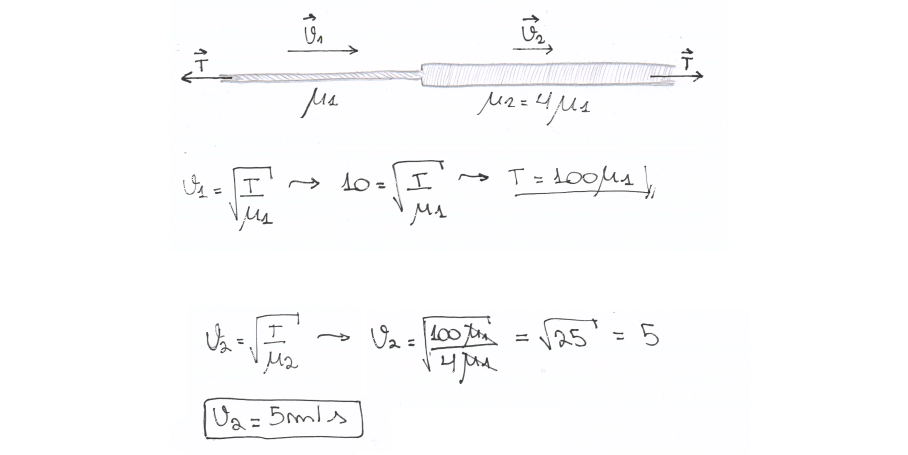 v⃗1 v⃗2
T⃗ T⃗
μ1 μ2 = 4μ1
v1 = √(T/μ1) → 10 = √(T/μ1) → T = 100μ1
v2 = √(T/μ2) → v2 = √(100μ1/4μ1) = √25 = 5
v2 = 5m/s